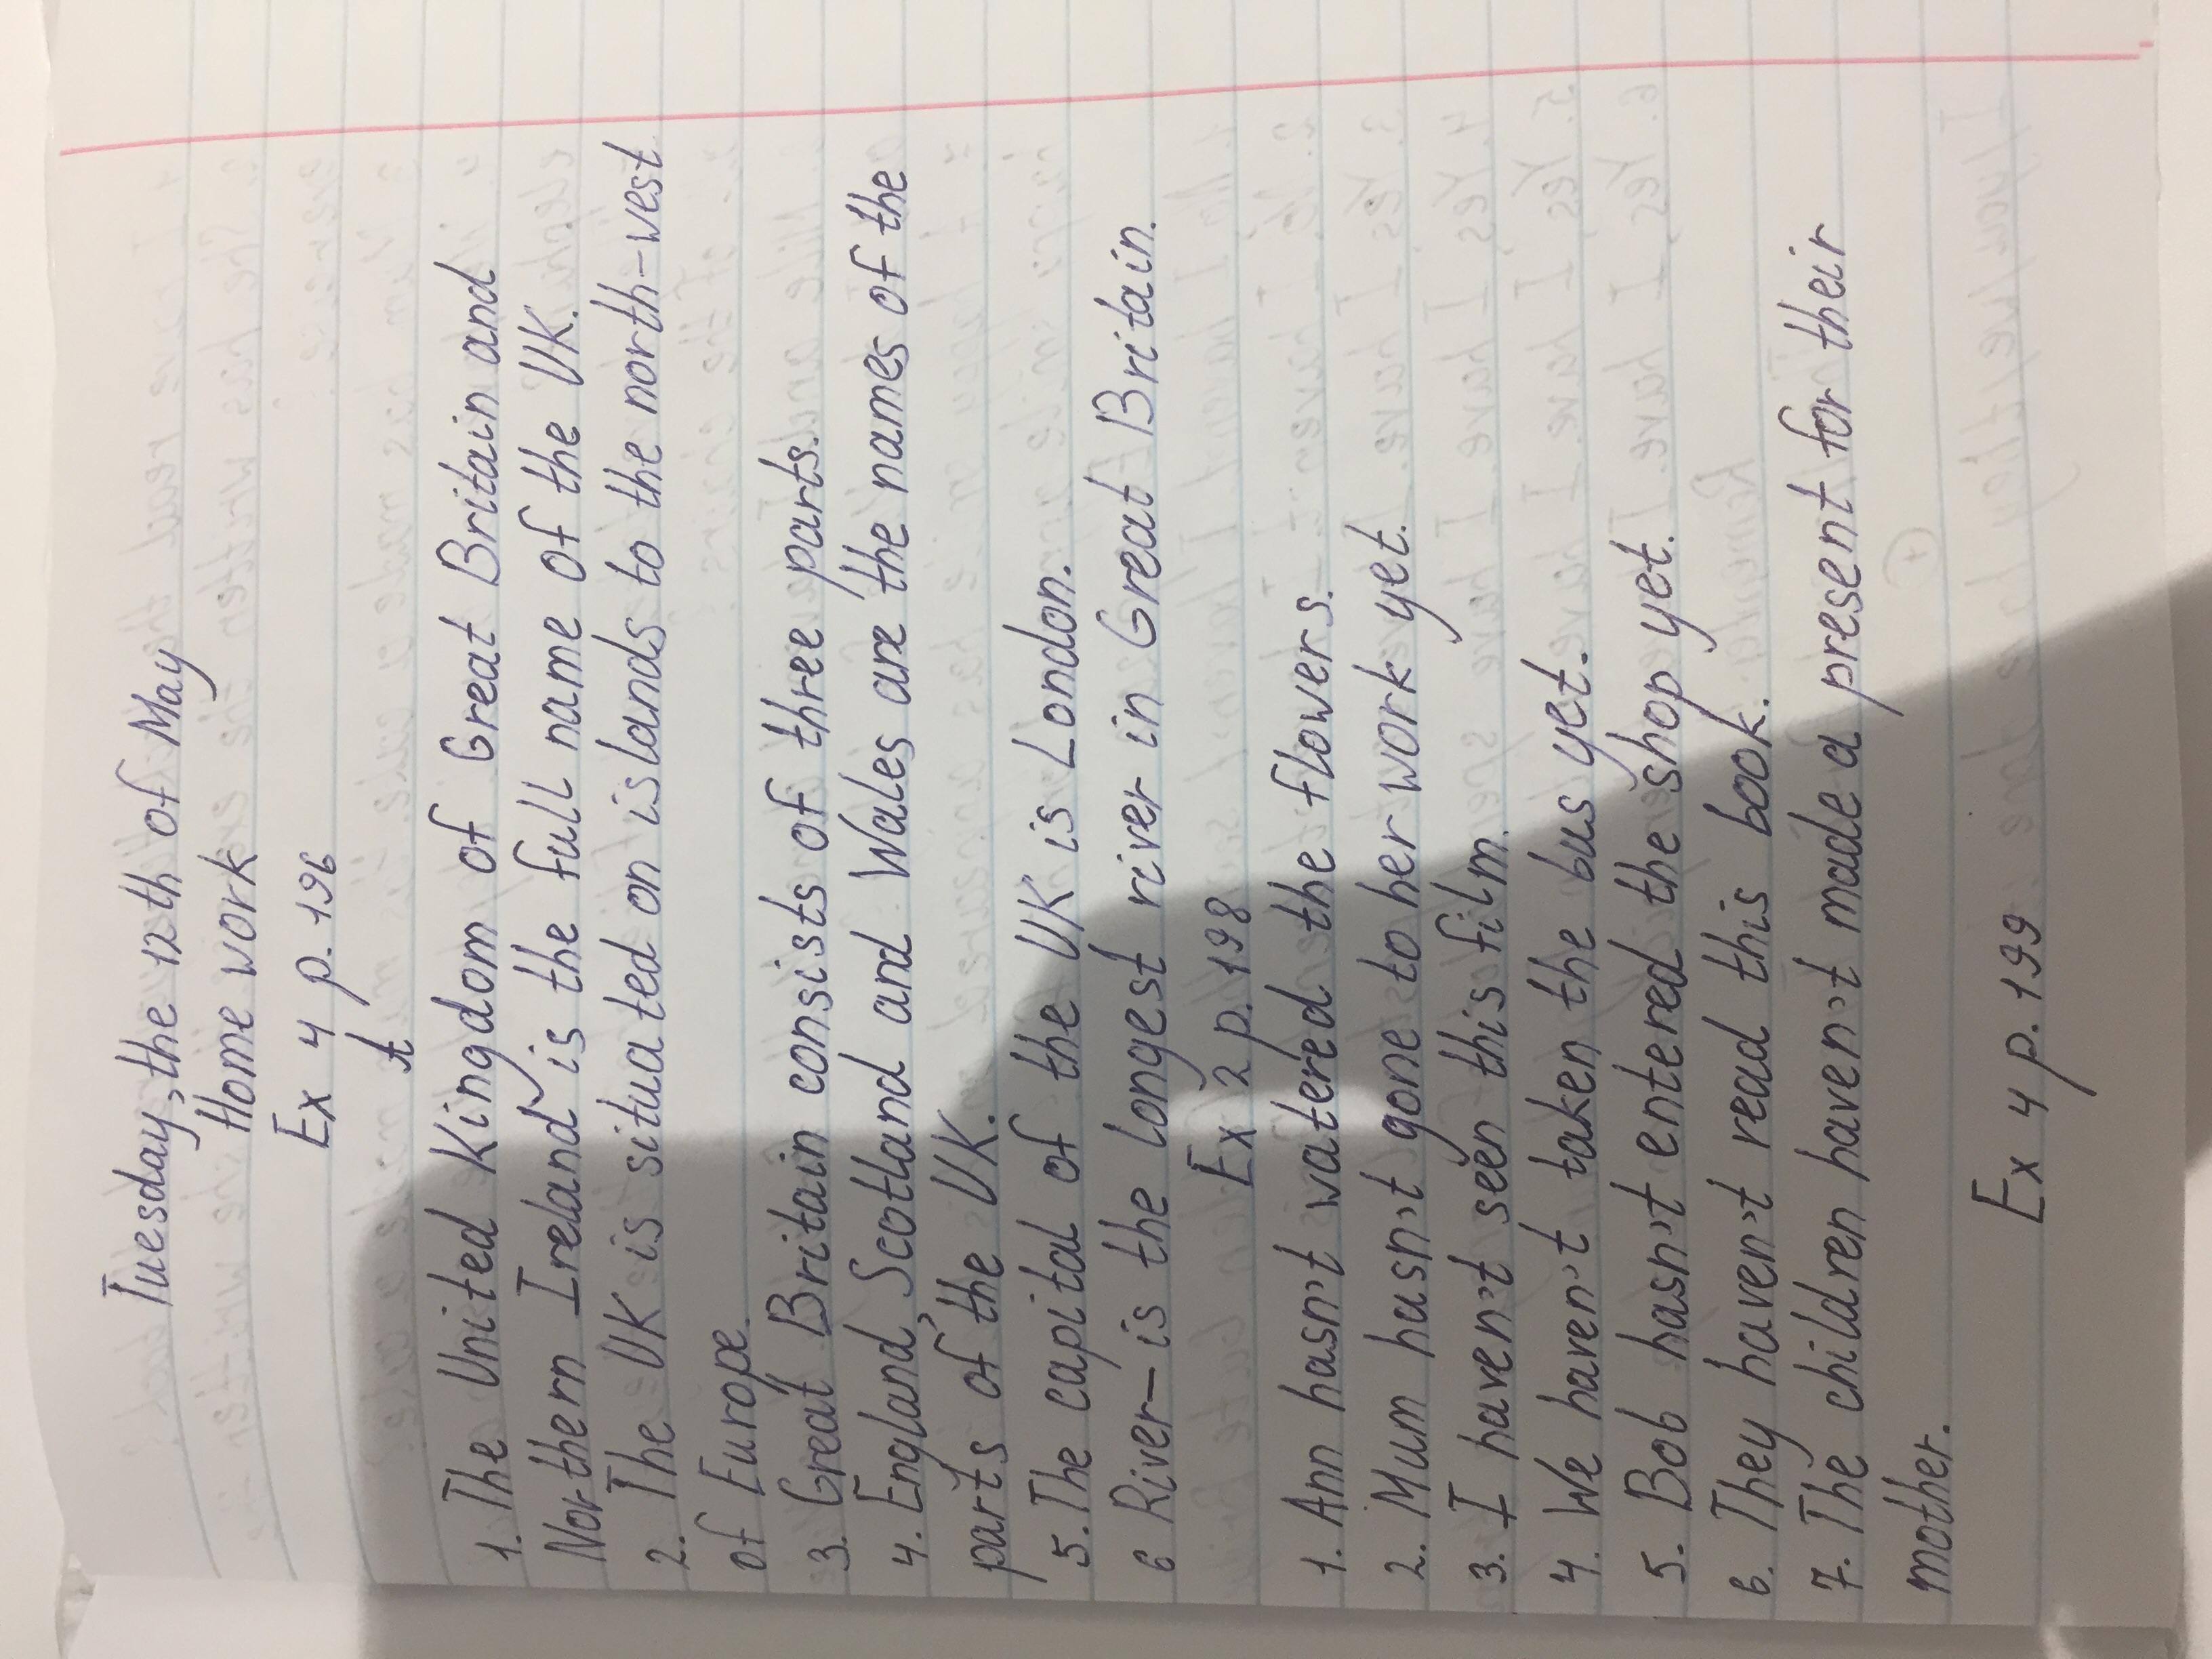 Tuesday, the 12 th of May
Home work
Ex 4 p. 196
A
1. The United Kingdom of Great Britain and
Northern Ireland is the full name of the UK.
2. The UK is situated on islands to the north-west
of Europe.
3. Great Britain consists of three parts.
4. England, Scotland and Wales are the names of the
parts of the UK.
5. The capital of the UK is London.
6 River – is the longest river in Great Britain.
Ex 2 p. 198
1. Ann hasn't watered the flowers.
2. Mum hasn't gone to her work yet.
3. I haven't seen this film.
4. We haven't taken the bus yet.
5. Bob hasn't entered the shop yet.
6. They haven't read this book.
7. The children haven't made a present for their
mother.
Ex 4 p. 199